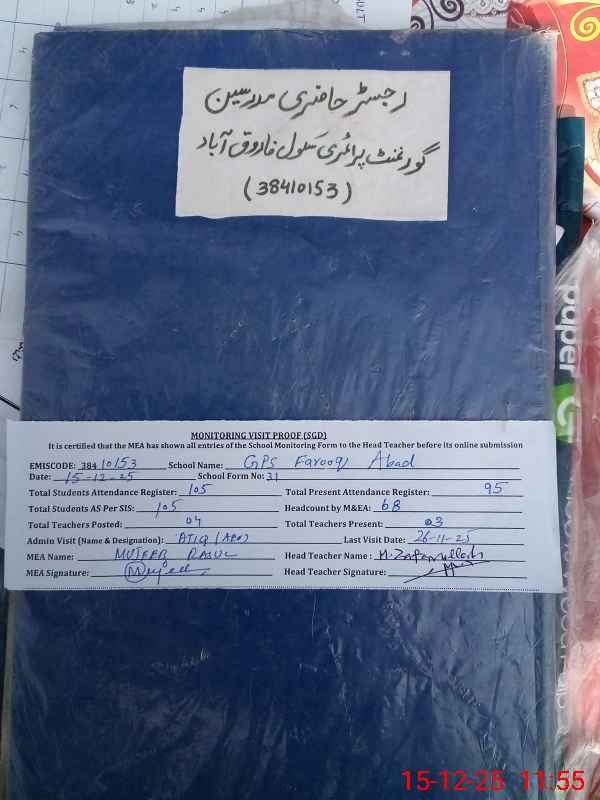 رجسٹر حاضری مدرسین
گورنمنٹ پرائمری سکول فاروق آباد
(38410153)
paper
MONITORING VISIT PROOF (SGD)
It is certified that the MEA has shown all entries of the School Monitoring Form to the Head Teacher before its online submission
EMISCODE: 384 10153 School Name: GPS Farooq Abad
Date: 15-12-25 School Form No: 31
Total Students Attendance Register: 105 Total Present Attendance Register: 95
Total Students AS Per SIS: 105 Headcount by M&EA: 68
Total Teachers Posted: 04 Total Teachers Present: 03
Admin Visit (Name & Designation): ATIQ (AEO) Last Visit Date: 26-11-25
MEA Name: MUJEEB RASUL Head Teacher Name: M. Zafarullah
MEA Signature: Mujeeb Head Teacher Signature:
15-12-25 11:55